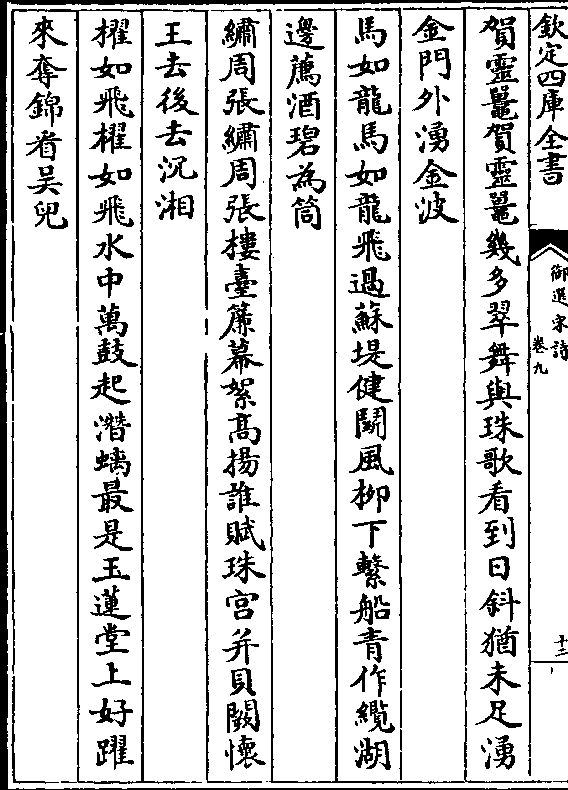 欽定四庫全書
御選宋詩
卷九
十三
賀靈鼉賀靈鼉幾多翠舞與珠歌看到日斜猶未足湧
金門外湧金波
馬如龍馬如龍飛過蘇堤健鬭風柳下繫船青作纜湖
邊薦酒碧為筒
繡周張繡周張樓臺簾幕絮髙揚誰賦珠宮并貝闕懷
王去後去沉湘
櫂如飛櫂如飛水中萬鼓起潛螭最是玉蓮堂上好躍
來奪錦看吴兒